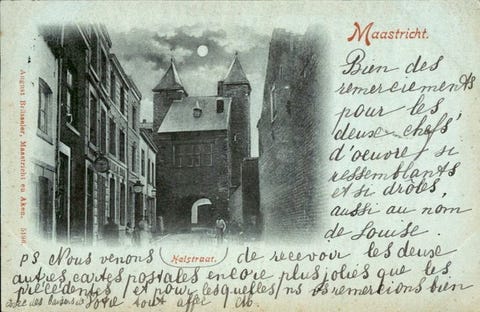 Maastricht.
Bien des
remerciements
pour les
deux chefs
d'oeuvre, si
ressemblants
et si drôles,
aussi au nom
de Louise.
August Brüssler, Maastricht en Aken. 5196
Helstraat.
PS Nous venons de recevoir les deux
autres cartes postales encore plus jolies que les
précédentes / et pour lesquelles / ns vs remercions bien
avec des baisers de Votre tout affec